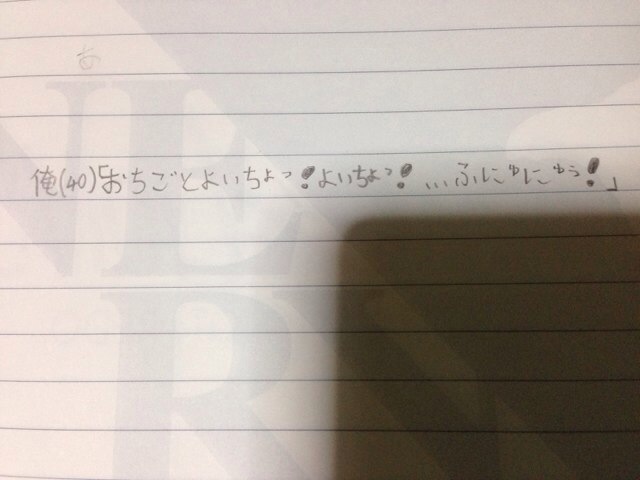 あ
俺(40)「おちごとよいちょっ!よいちょっ!...ふにゅにゅぅ!」
NE
R